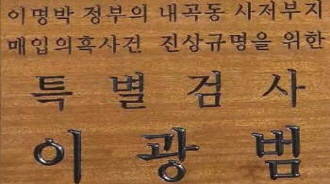 이명박 정부의 내곡동 사저부지
매입의혹사건 진상규명을 위한
특별검사
이광범